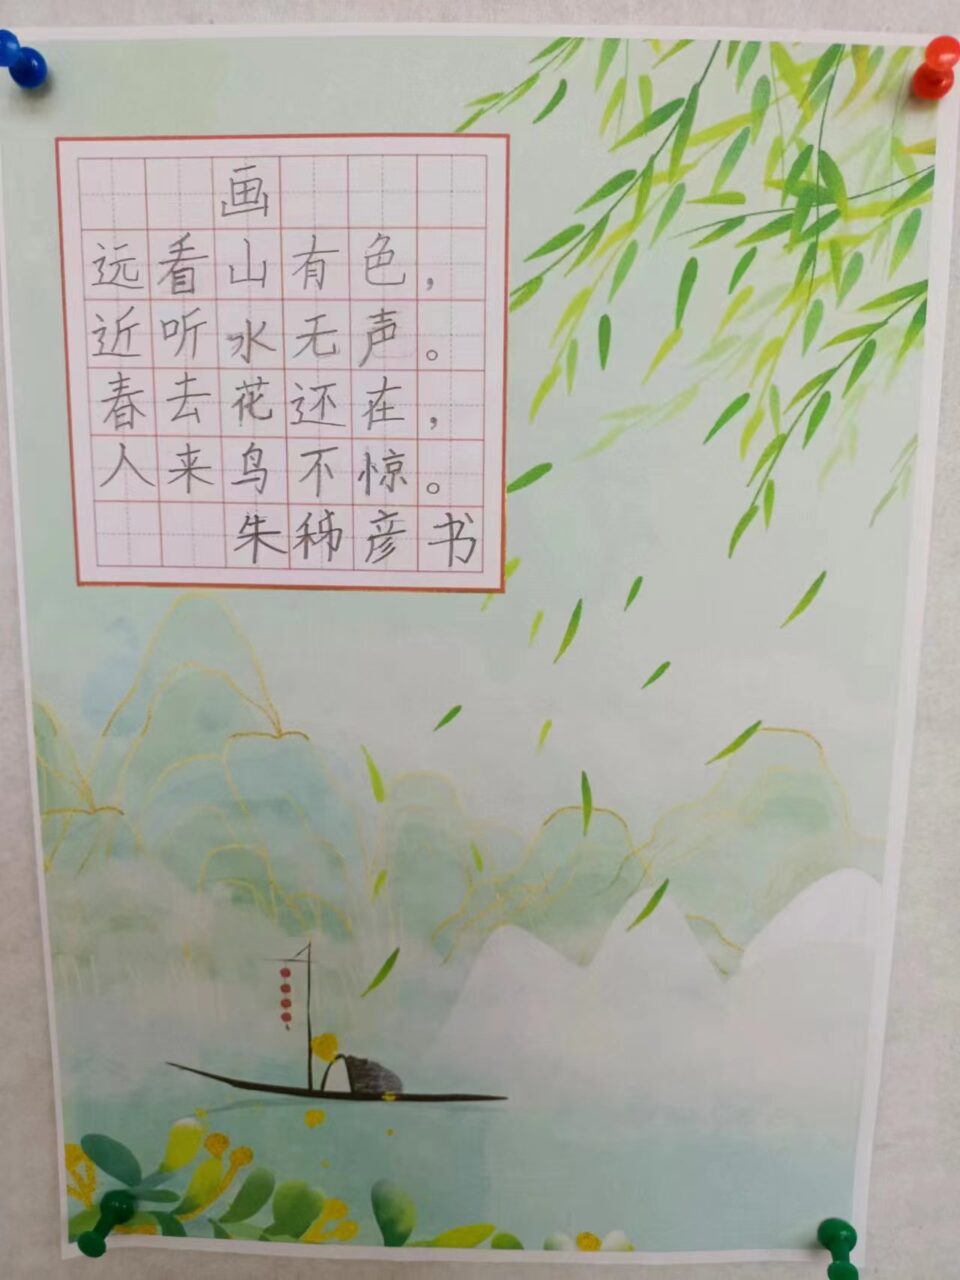 画
远看山有色，
近听水无声。
春去花还在，
人来鸟不惊。
朱秭彦书